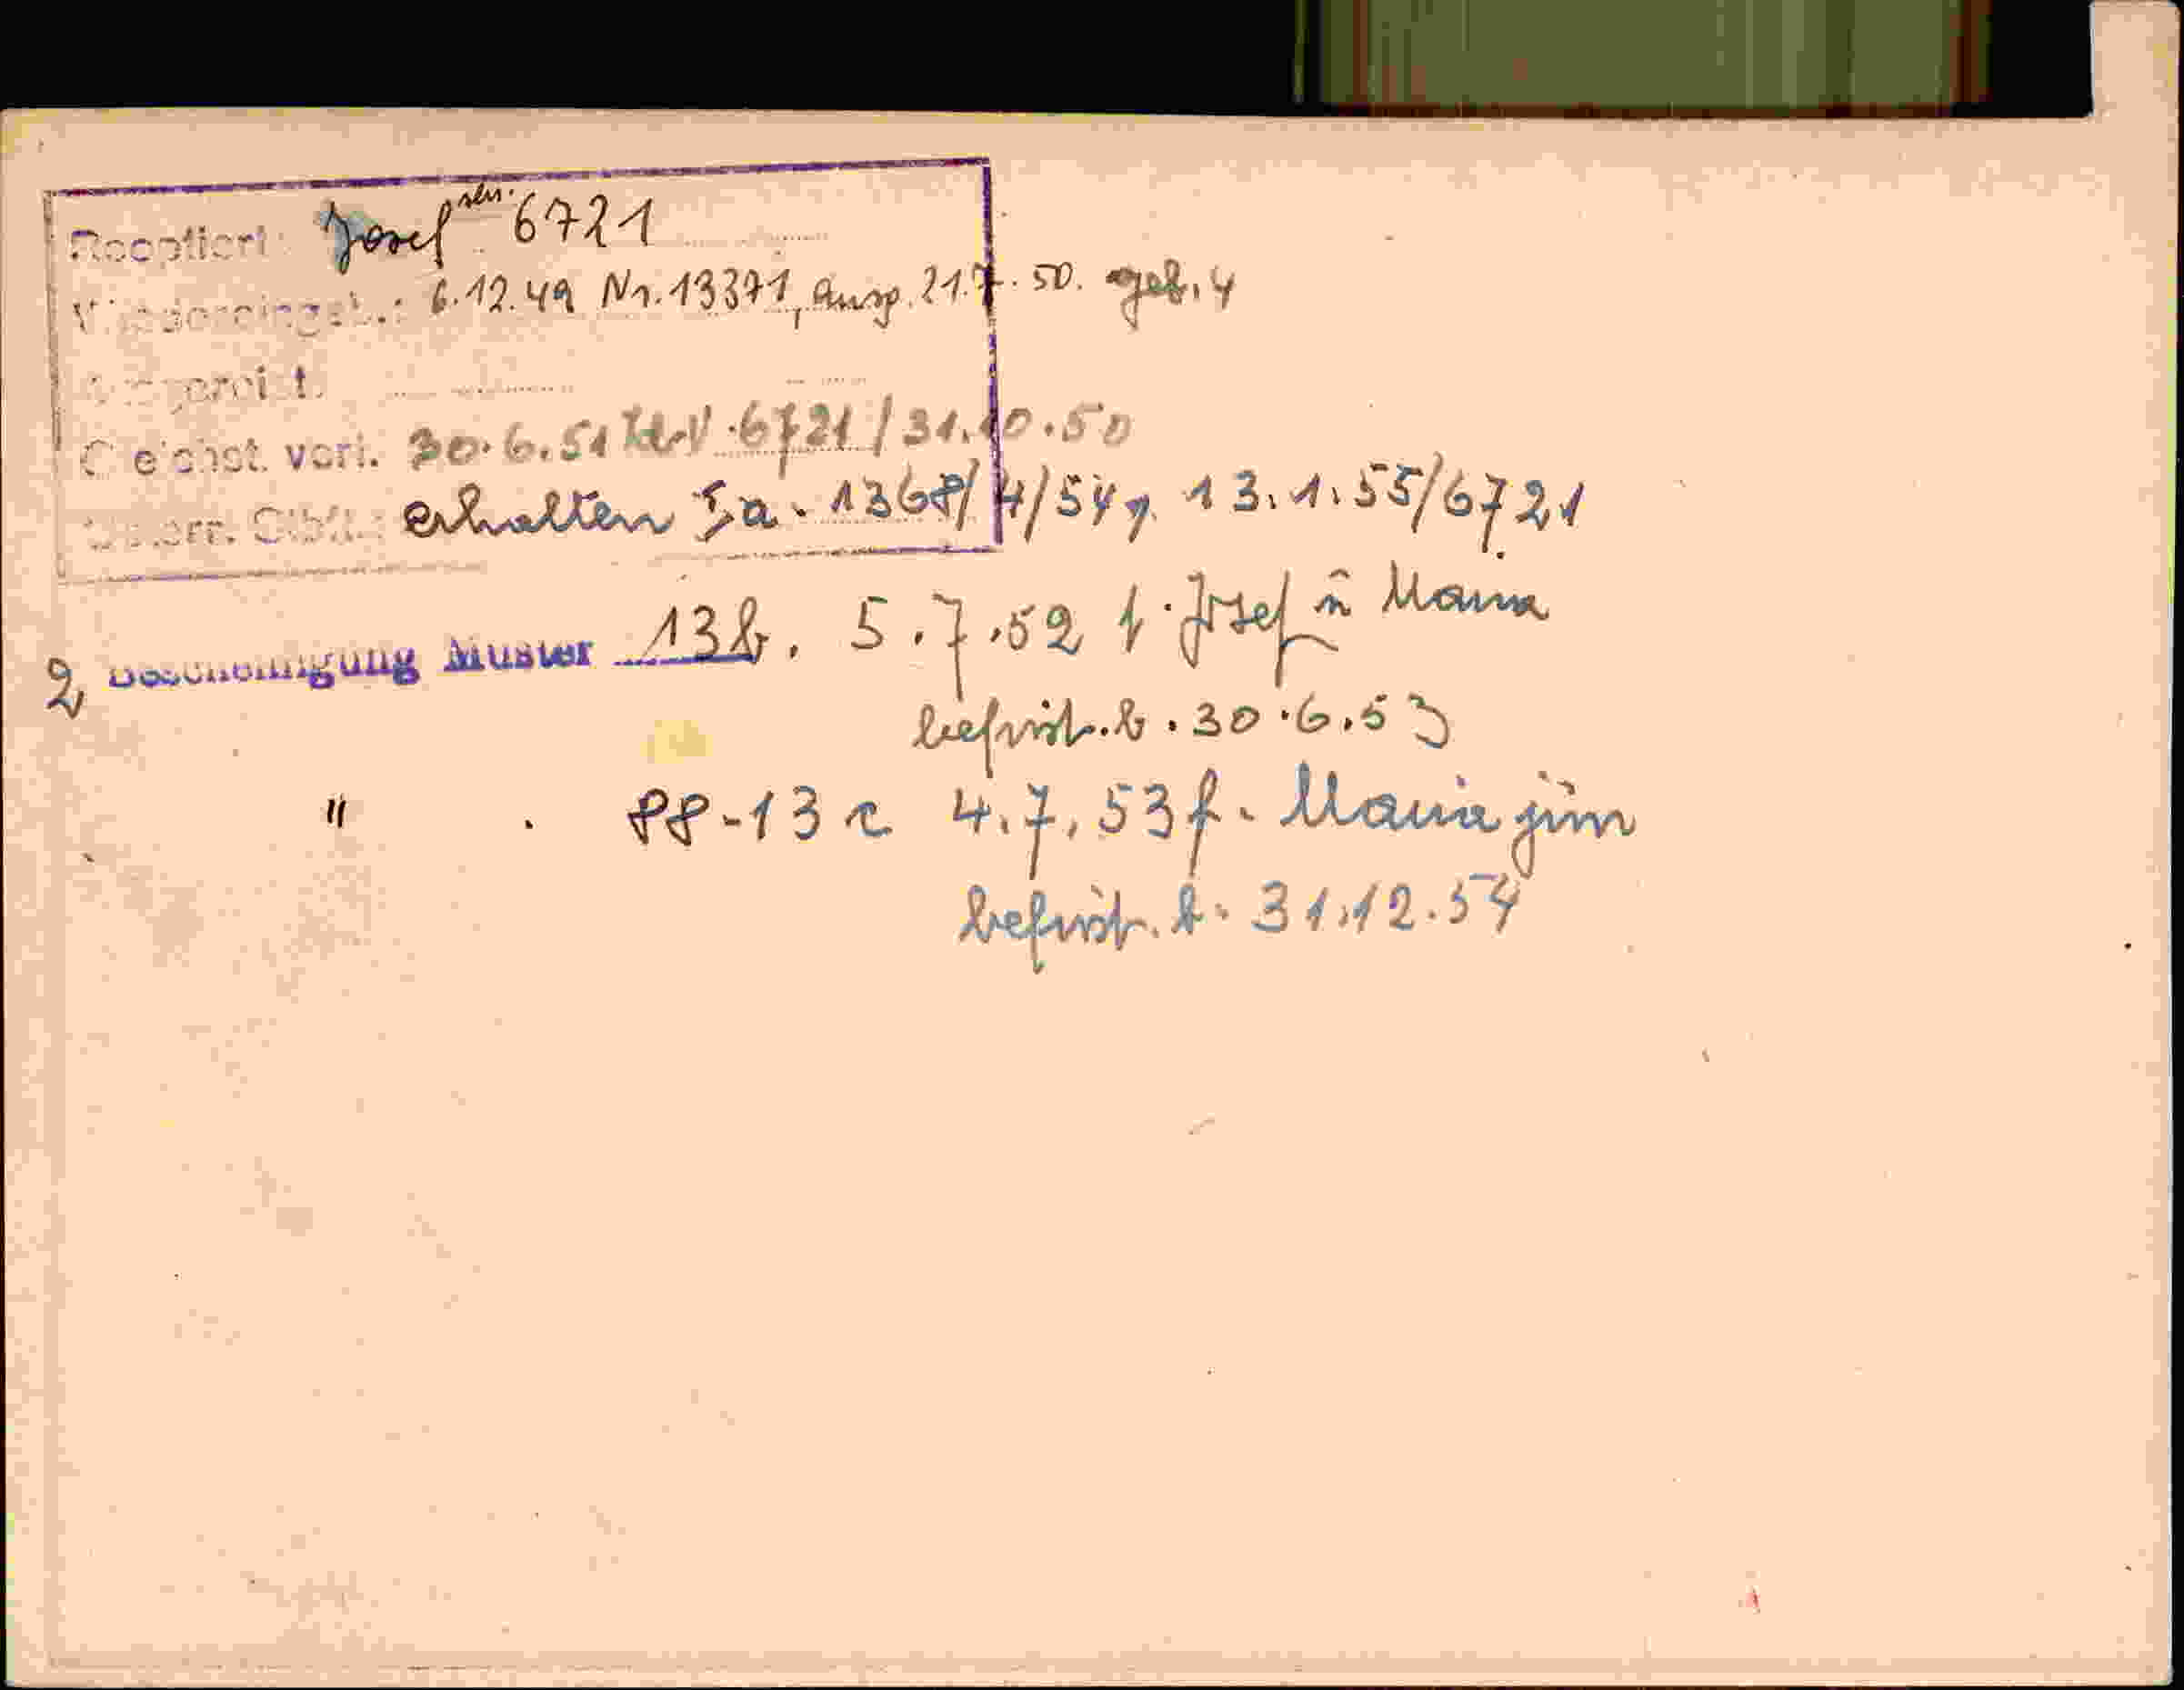 Reoptiert: Josef sen. 6721
Wiedereingeb.: 6.12.49 Nr. 13371, ausg. 21.7.50. geb. 4
Gleichst. verl. 30.6.51 6721/31.10.50
Österr. Stbft.: erhalten Ia-1368/4/54, 13.1.55/6721
2 Bescheinigung Muster 13b. 5.7.52 f. Josef u Maria
befrist. b. 30.6.53
" . 88-13c 4.7.53 f. Maria jun
befrist. b. 31.12.54